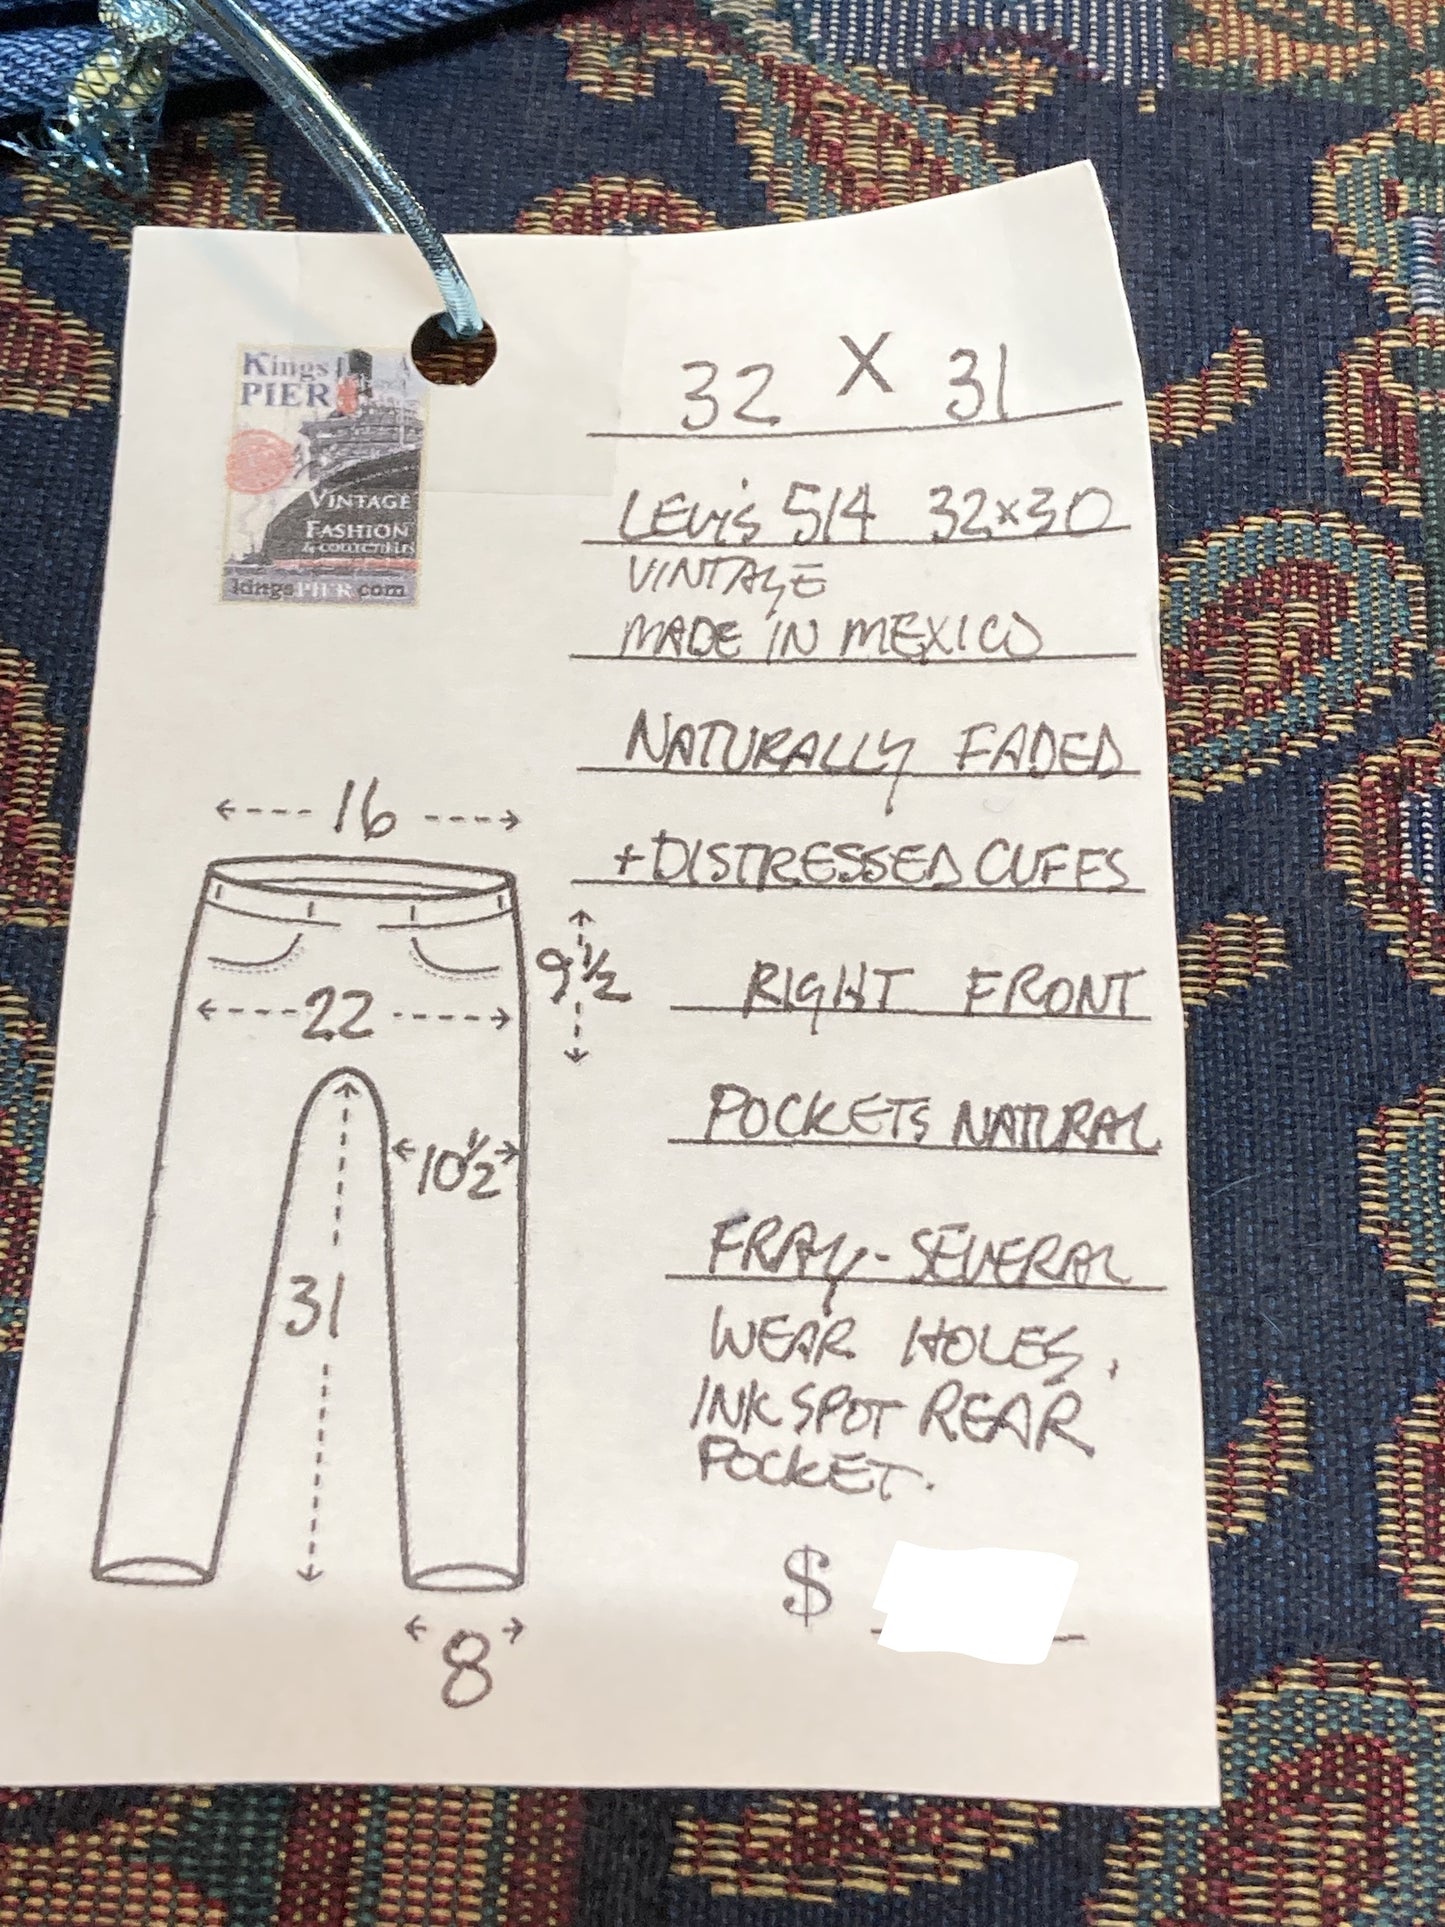 Kings
PIER
VINTAGE
FASHION
& COLLECTIBLES
kingsPIER.com
32 X 31
LEVI'S 514 32x30
VINTAGE
MADE IN MEXICO
NATURALLY FADED
+DISTRESSED CUFFS
RIGHT FRONT
POCKETS NATURAL
FRAY - SEVERAL
WEAR HOLES,
INK SPOT REAR
POCKET.
$
16
9 1/2
22
10 1/2
31
8